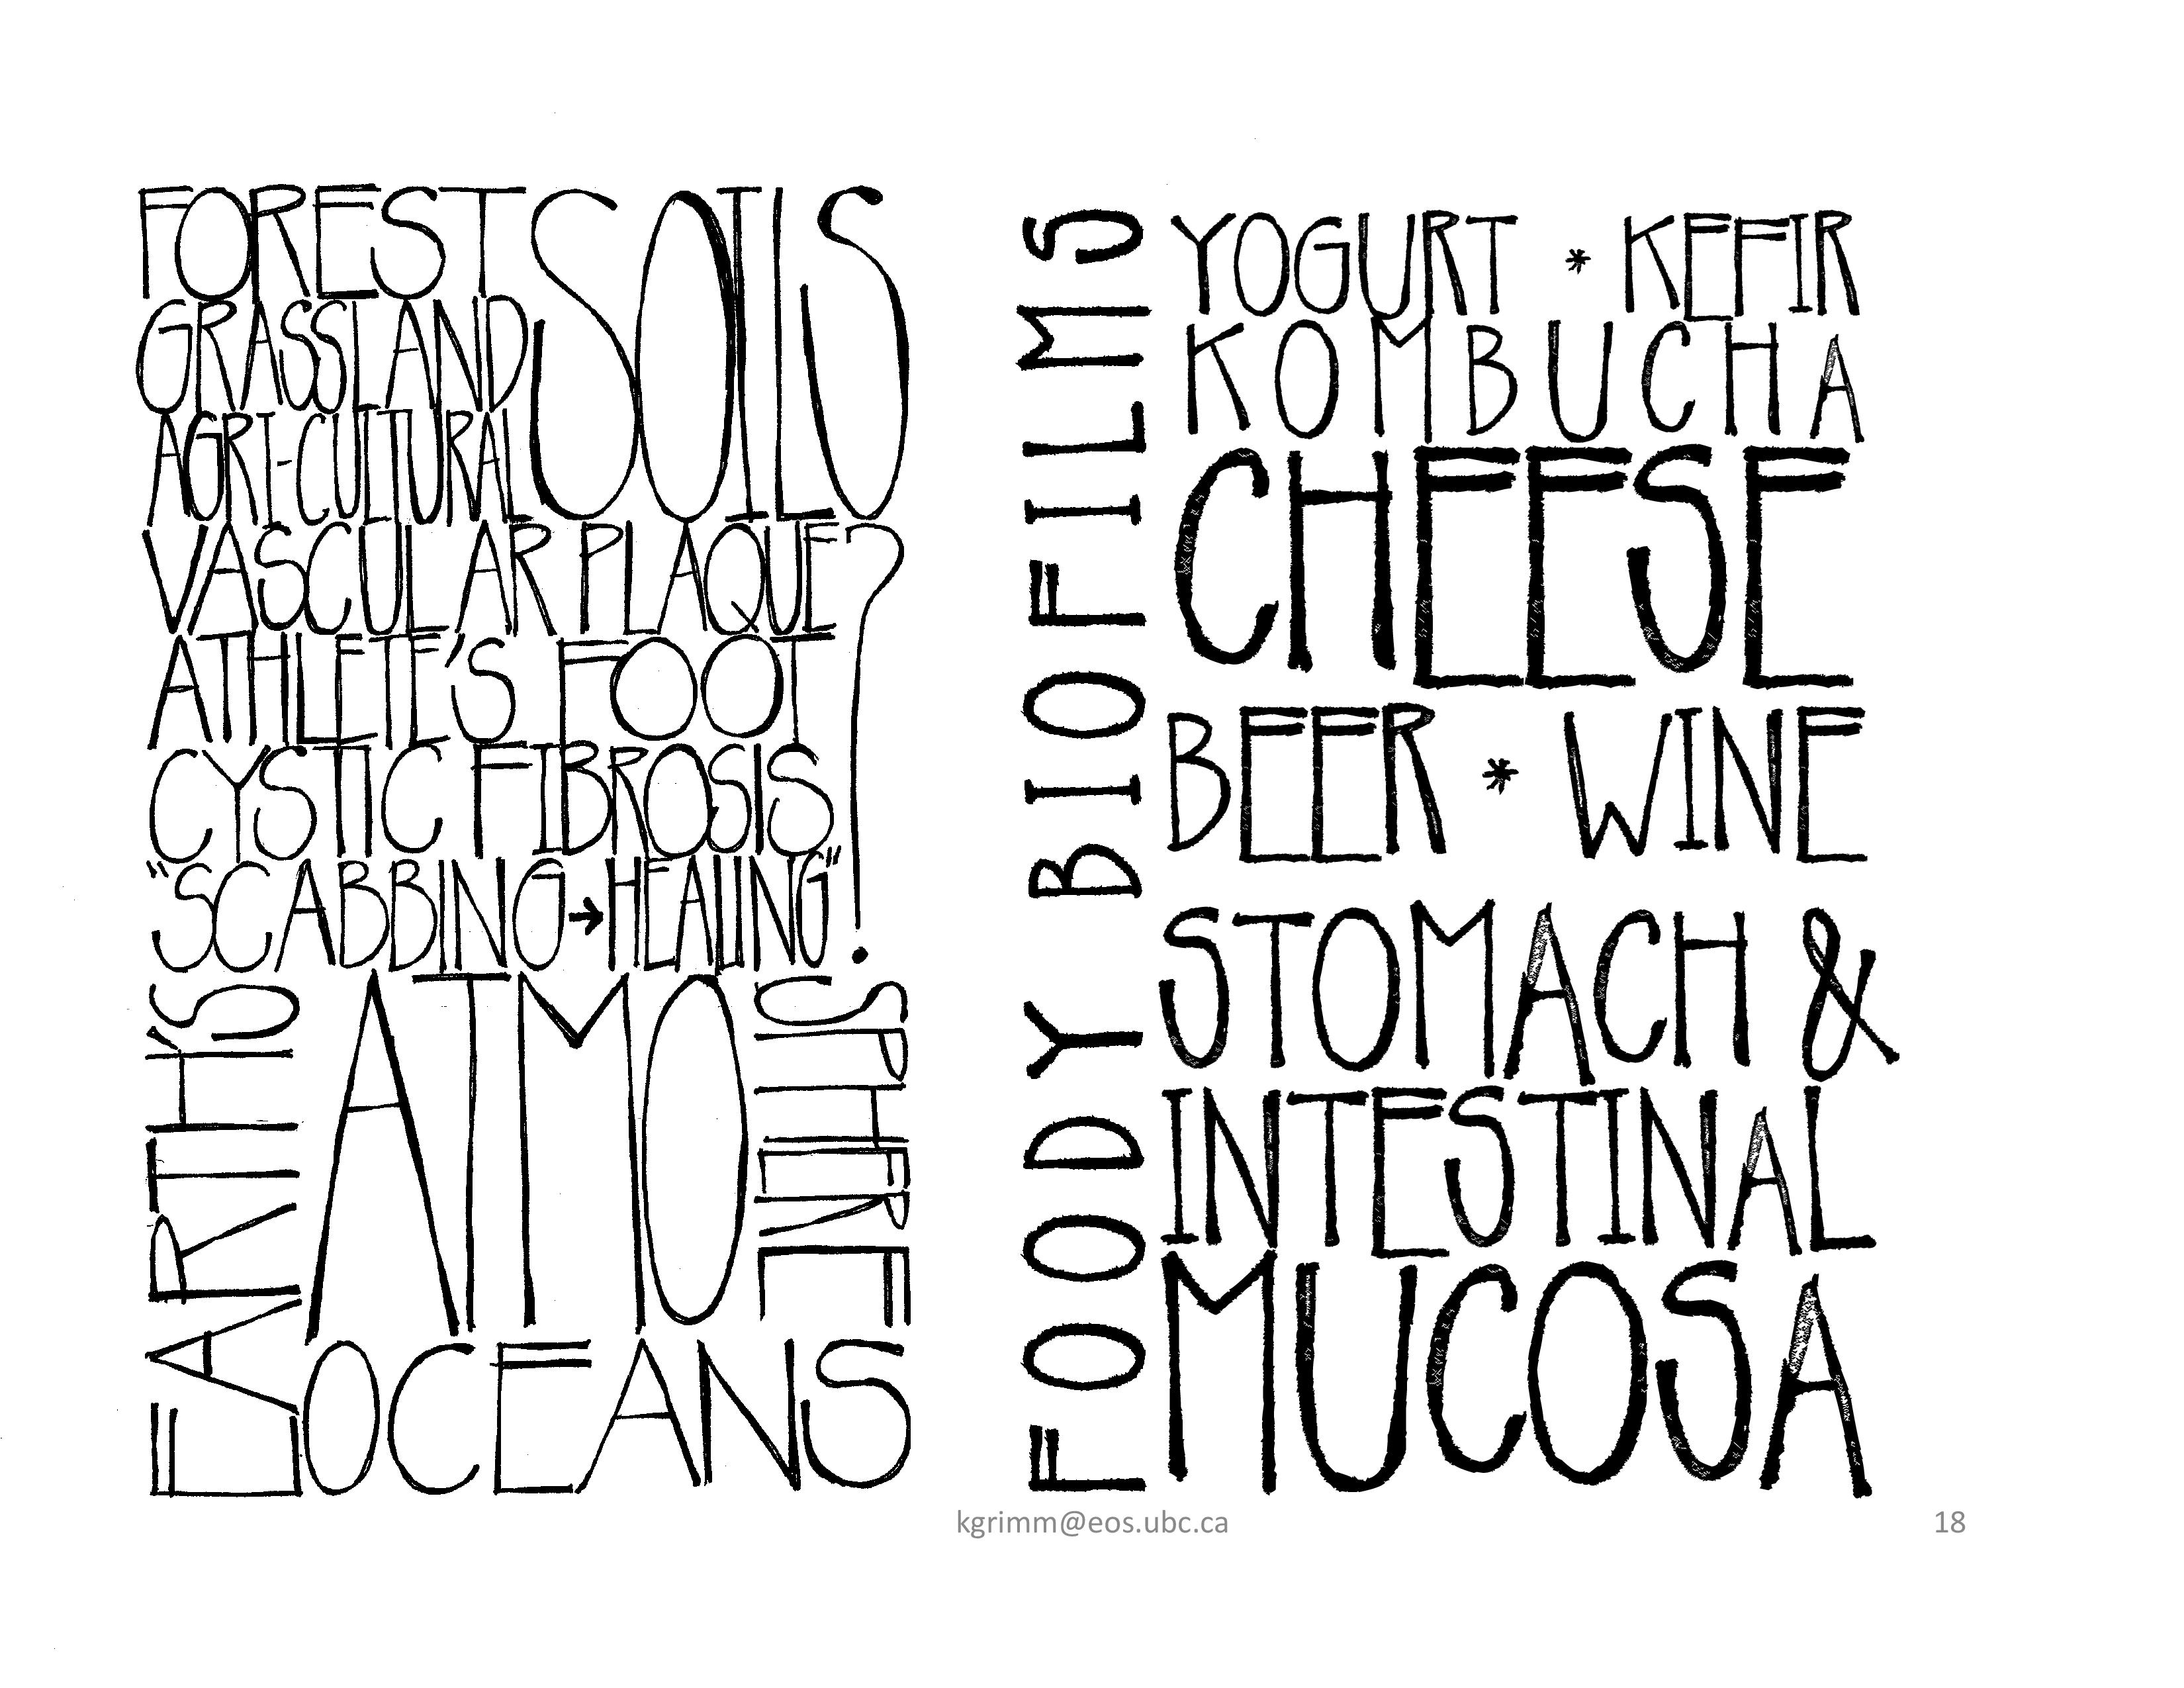 FOREST SOILS
GRASSLAND
AGRI-CULTURAL
VASCULAR PLAQUE?
ATHLETE'S FOOT
CYSTIC FIBROSIS
"SCABBING→HEALING"
EARTH'S
ATMO
SPHERE
OCEANS
FOODY BIOFILMS
YOGURT * KEFIR
KOMBUCHA
CHEESE
BEER * WINE
STOMACH &
INTESTINAL
MUCOSA
kgrimm@eos.ubc.ca
18